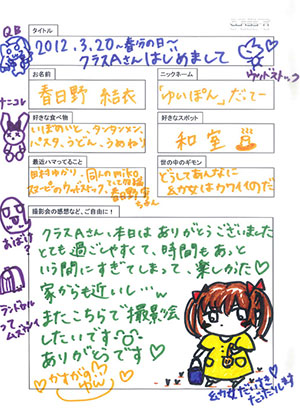 QB
タイトル
2012.3.20〜春分の日〜
クラスAさんはじめまして
ウッドストック
お名前
春日野 結衣
ニックネーム
「ゆいぽん」だてー
ナニコレ
好きな食べ物
パスタ、うどん、うめねり
好きなスポット
和室
最近ハマってること
田村ゆかり、
スヌーピーのウッドストック
春日野
ちゃん
世の中のギモン
どうしてあんなに
幼女はカワイイのだ
おばけ?
撮影会の感想など、ご自由に!
クラスAさん、本日はありがとうございました
とても過ごしやすくて、時間もあっと
いう間にすぎてしまって、楽しかた♡
家からも近いし…w
またこちらで撮影会
したいです
ありがとうです♡
ランドセル
って
ムズカシイ
かすがの
幼女だいすき